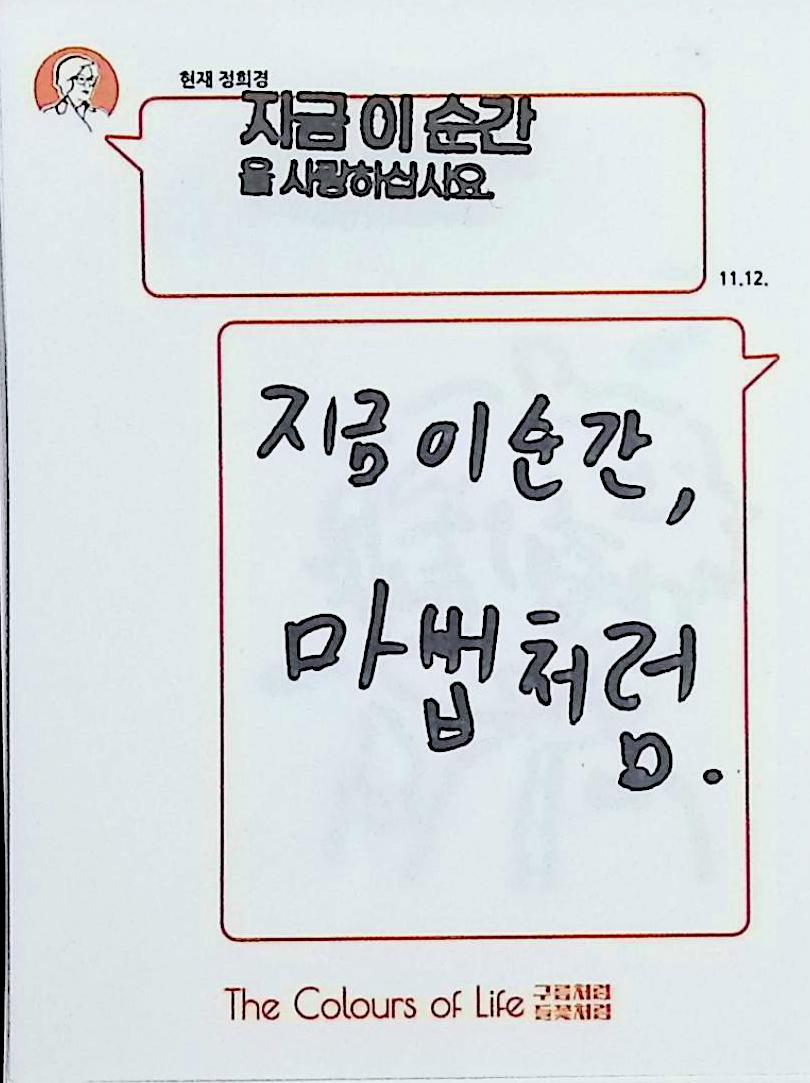 현재 정희경
지금 이 순간
을 사랑하십시요.
11.12.
지금 이 순간,
마법처럼.
The Colours of Life 구름처럼
들꽃처럼